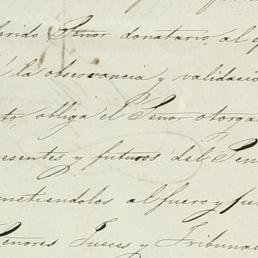 erido Señor donatario, al
á la observancia y validació
to, obliga el Señor otorga
esentes y futuros del Señ
metiendolos al fuero y ju
Señores Jueces y Tribuna